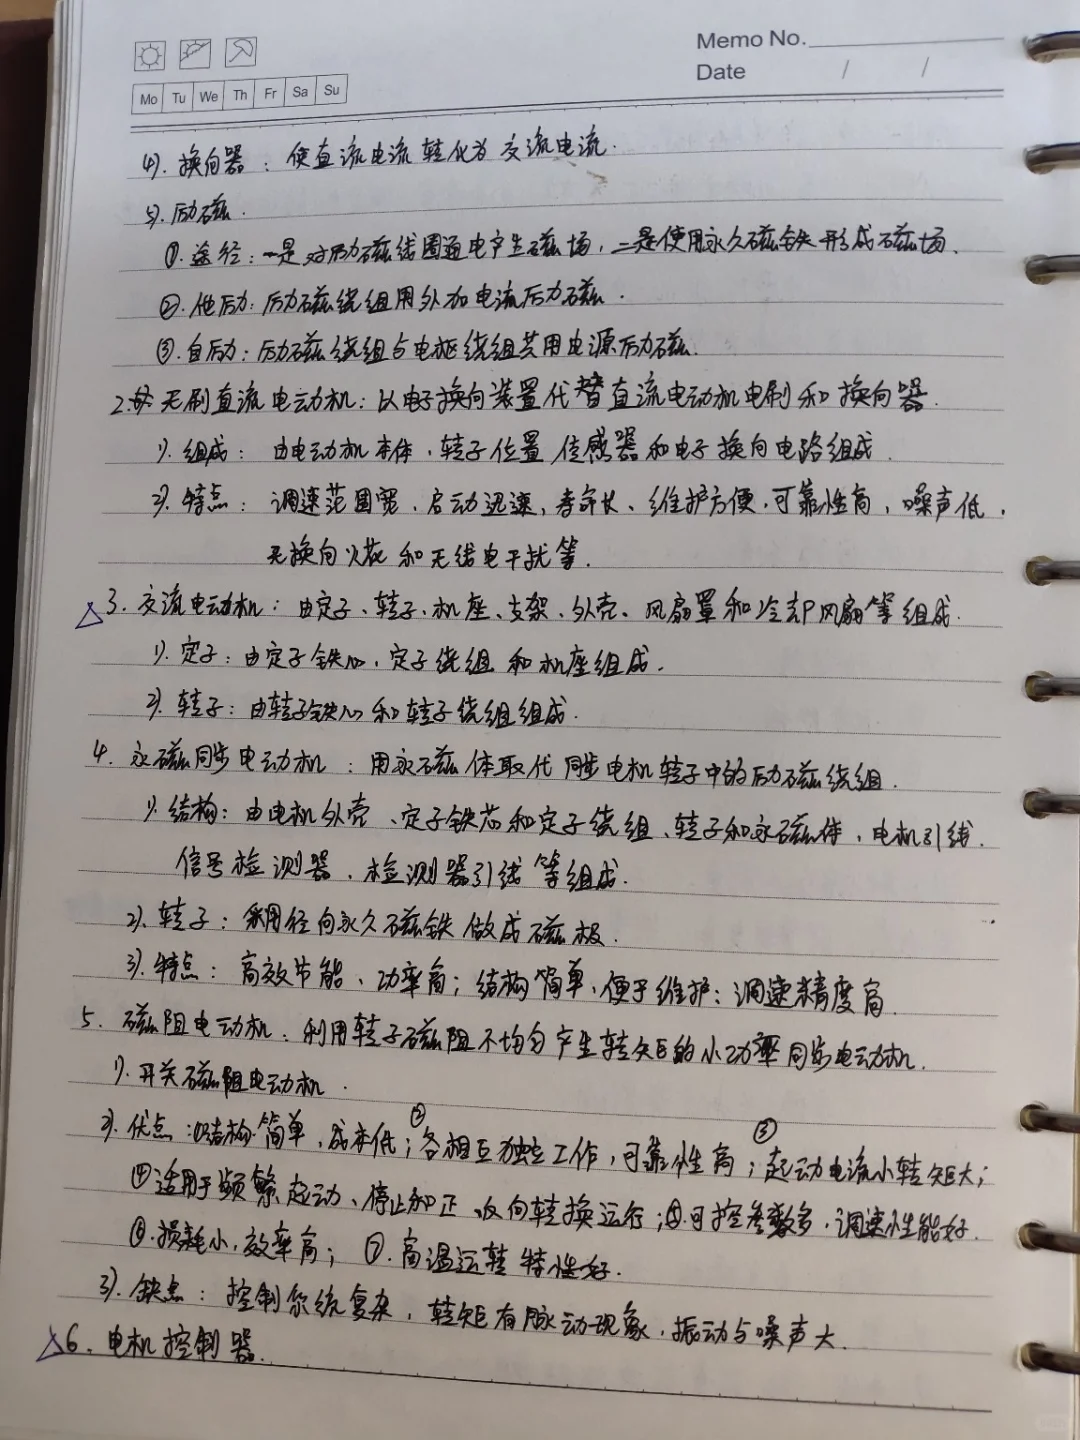 Memo No.
Date / /
Mo Tu We Th Fr Sa Su
4). 换向器：使直流电流转化为交流电流.
5). 励磁.
①. 途径：一是对励磁线圈通电产生磁场，二是使用永久磁铁形成磁场.
②. 他励：励磁绕组用外加电流励磁.
③. 自励：励磁绕组与电枢绕组共用电源励磁.
2. 无刷直流电动机：以电子换向装置代替直流电动机电刷和换向器.
1). 组成：由电动机本体、转子位置传感器和电子换向电路组成.
2). 特点：调速范围宽、启动迅速、寿命长、维护方便、可靠性高，噪声低、
无换向火花和无线电干扰等.
△3. 交流电动机：由定子、转子、机座、支架、外壳、风扇罩和冷却风扇等组成.
1). 定子：由定子铁心、定子绕组和机座组成.
2). 转子：由转子铁心和转子绕组组成.
4. 永磁同步电动机：用永磁体取代同步电机转子中的励磁绕组.
1). 结构：由电机外壳、定子铁芯和定子绕组、转子和永磁体、电机引线.
信号检测器、检测器引线等组成.
2). 转子：采用径向永久磁铁做成磁极.
3). 特点：高效节能、功率高；结构简单、便于维护；调速精度高.
5. 磁阻电动机：利用转子磁阻不均匀产生转矩的小功率同步电动机.
1). 开关磁阻电动机.
2). 优点：①结构简单，成本低；②各相互独立工作，可靠性高；③起动电流小转矩大；
④适用于频繁起动、停止和正、反向转换运行；⑤.可控参数多，调速性能好.
⑥.损耗小，效率高；⑦.高温运转特性好.
3). 缺点：控制系统复杂，转矩有脉动现象，振动与噪声大.
△6. 电机控制器.